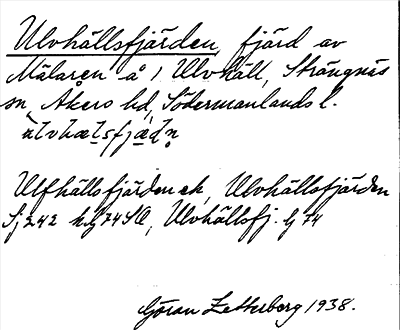 Ulvhällsfjärden, fjärd av
Mälaren å 1 Ulvhäll, Strängnäs
sn, Åkers hd, Södermanlands l.
Ulfhällsfjärden ek, Ulvhällsfjärden
Sj 242 hdg 74 SO, Ulvhällsfj. G 74
Göran Zetterberg 1938.